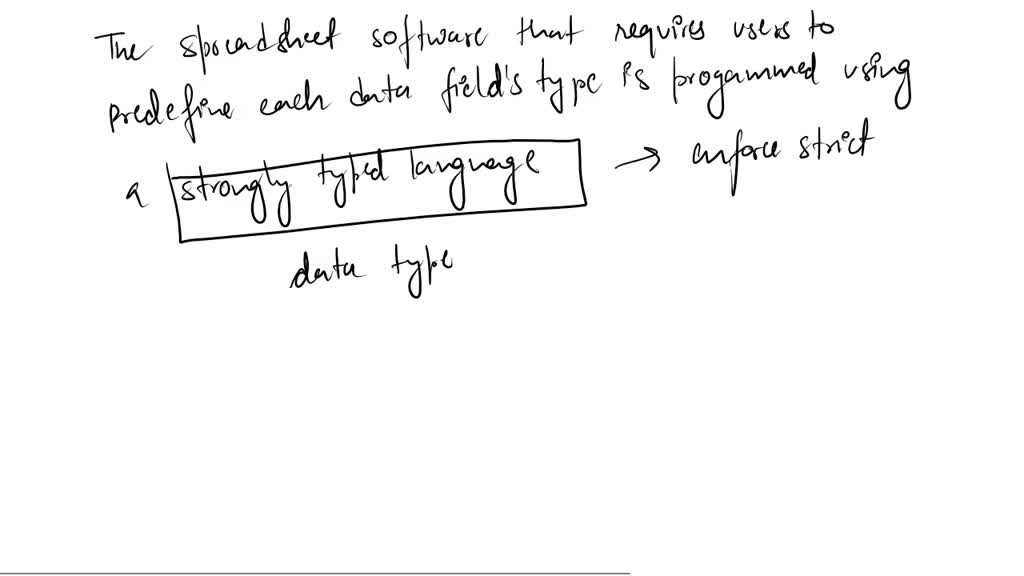 The spreadsheet software that requires users to
predefine each data field's type is progammed using
a strongly typed language → enforce strict
data type